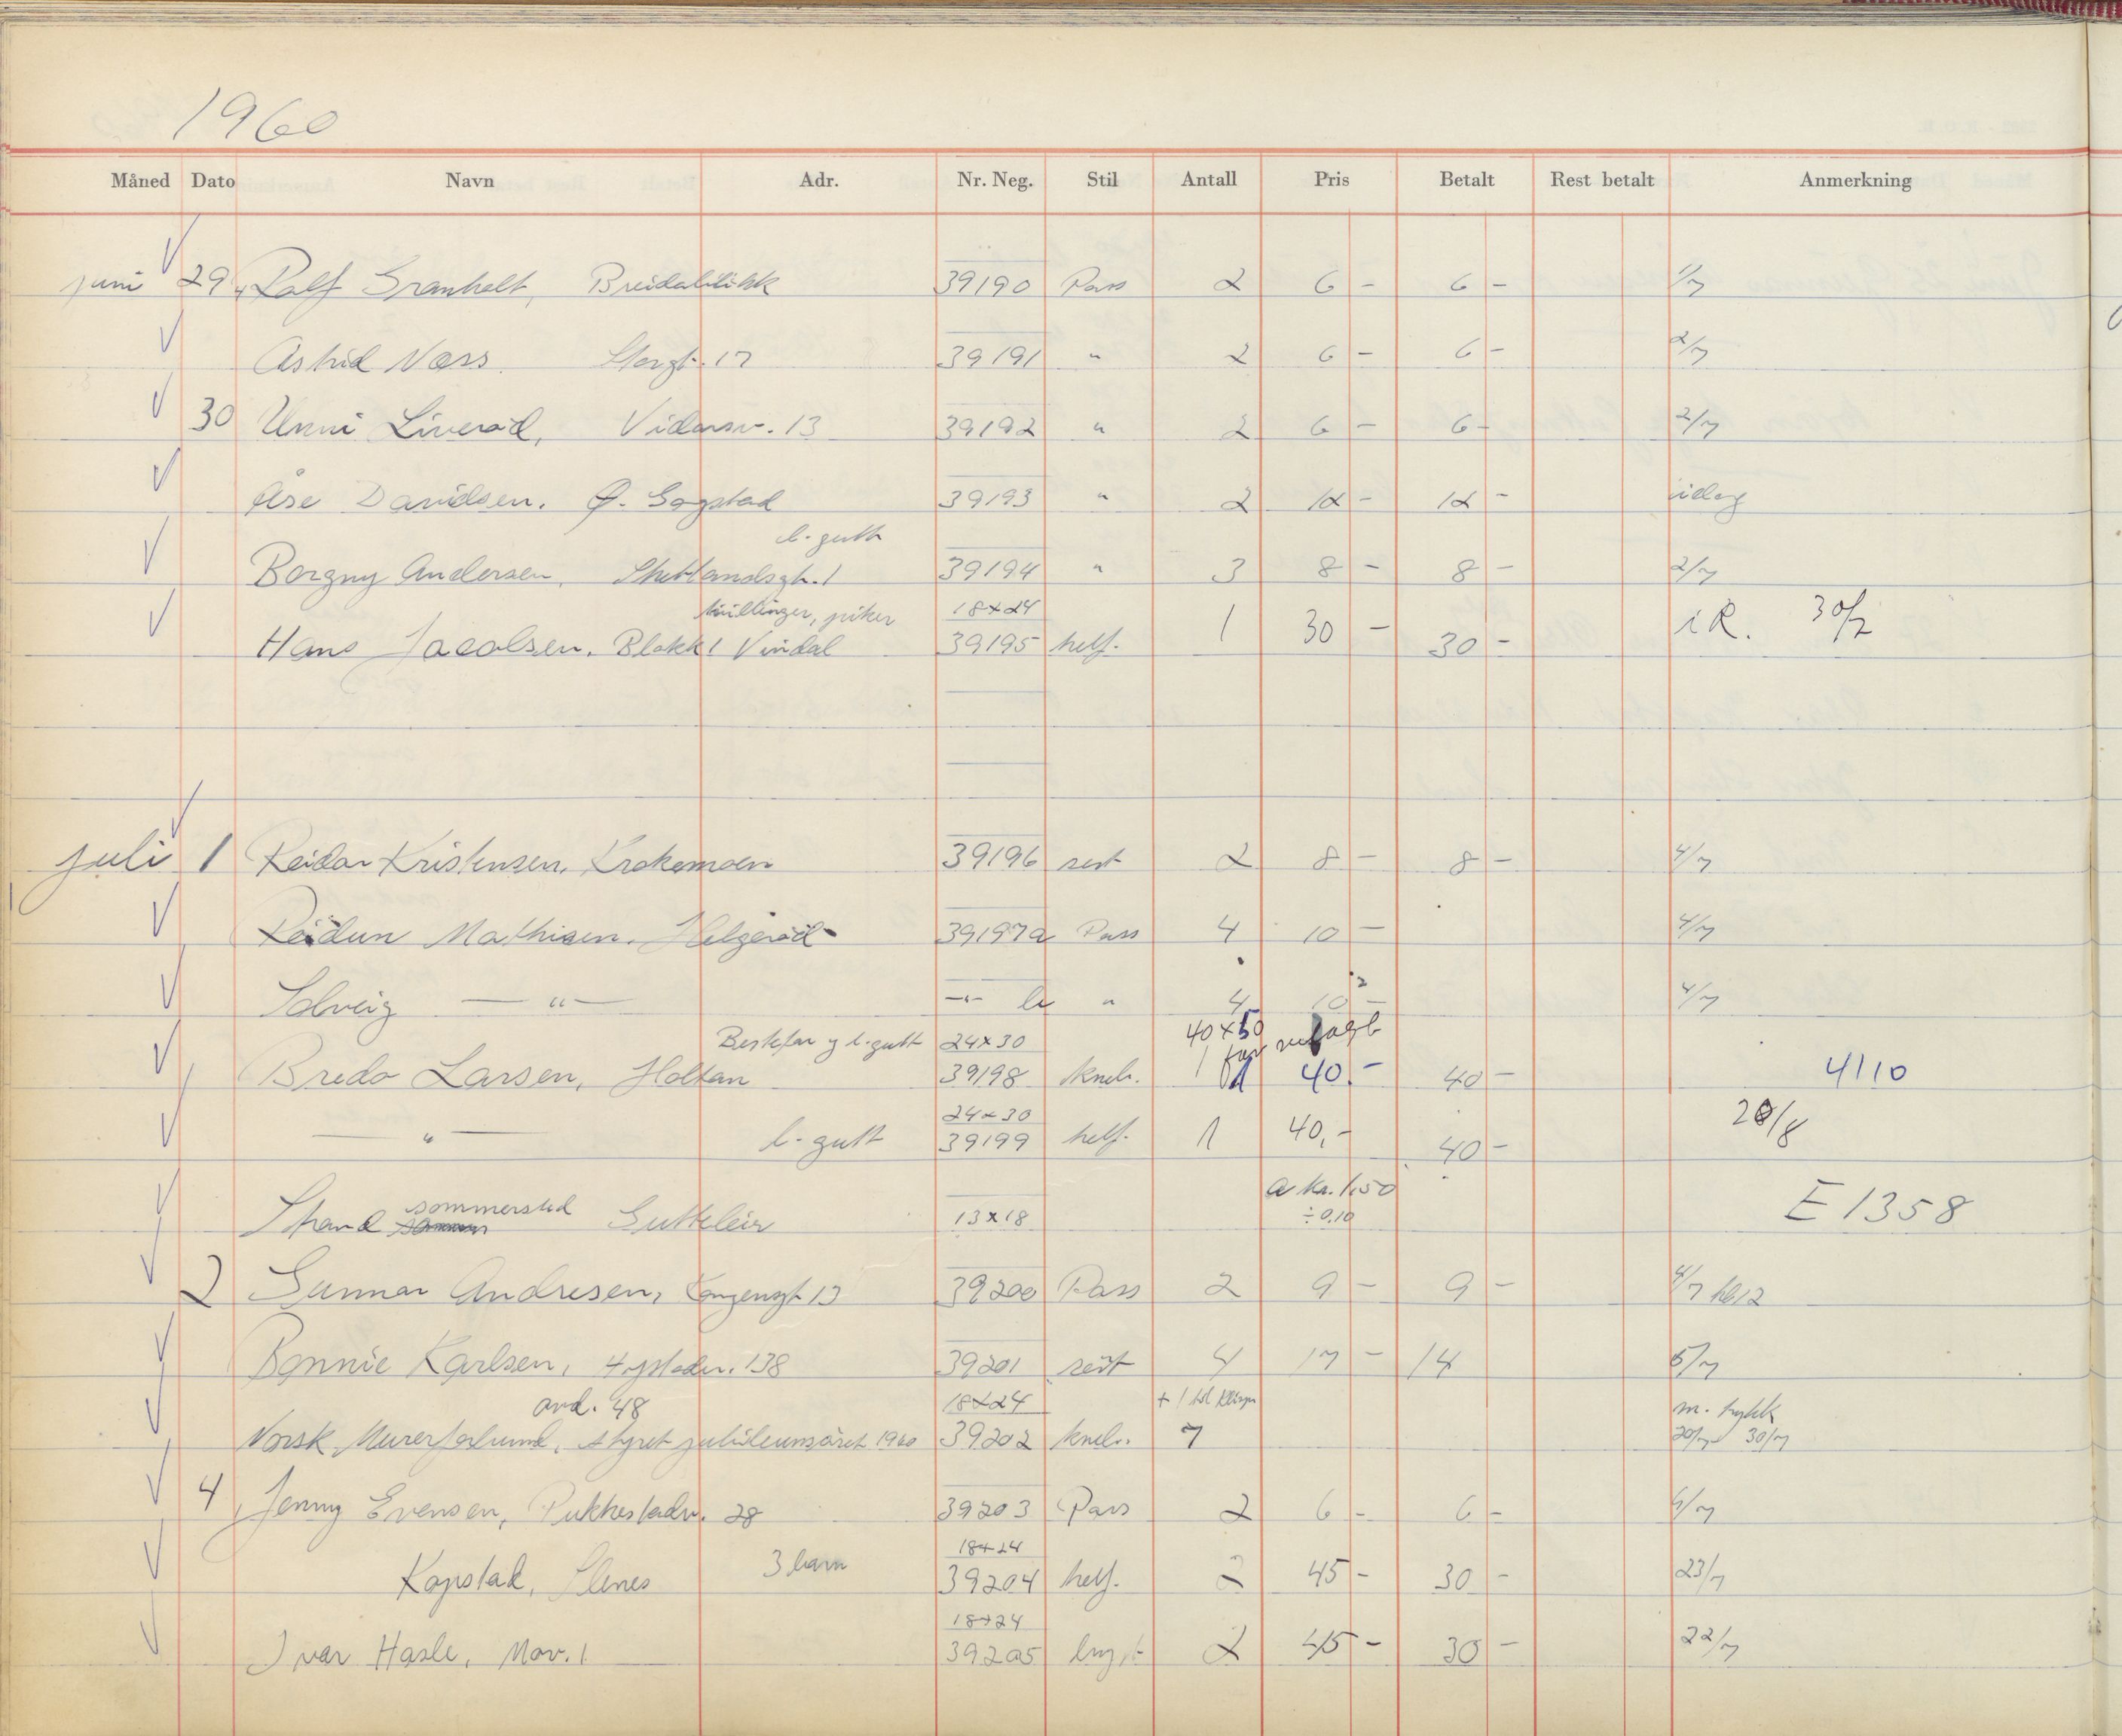 1960
Måned Dato Navn Adr. Nr. Neg. Stil Antall Pris Betalt Rest betalt Anmerkning
juni 29 Ralf Granholt, Breidablikk 39190 Pass 2 6 - 6 - 1/7
Astrid Næss Storgt. 17 39191 " 2 6 - 6 - 2/7
30 Unni Liverød, Vidarsv. 13 39192 " 2 6 - 6 - 2/7
Åse Davidsen. Ø. Gogstad 39193 " 2 12 - 12 - idag
l. gutt
Borgny Andersen, Shetlandsgt. 1 39194 " 3 8 - 8 - 2/7
tvillinger, piker 18x24
Hans Jacobsen. Blokk 1 Vindal 39195 helf. 1 30 - 30 - i R. 30/7
juli 1 Reidar Kristensen, Krokemoen 39196 sert 2 8 - 8 - 4/7
Reidun Mathisen. Helgerød 39197a Pass 4 10 - 4/7
Solveig — " — — " — b " 4 10 - 4/7
Bestefar g l. gutt 24x30 40x50
Bredo Larsen, Holtan 39198 kneb. 1 40.- 40 - 4/10
24x30
— " — l. gutt 39199 helf. 1 40,- 40 - 28/8
sommersted a kr. 1.50
Strand Gutteleir 13x18 ÷ 0.10 E 1358
2 Gunnar Andresen, Kongensgt 13 39200 Pass 2 9 - 9 - 4/7 kl 12
Bonnie Karlsen, Hystadv. 138 39201 sert 4 17 - 14 5/7
avd. 48 18x24
m. trykk
Norsk Murerforbund, styret jubileumsåret 1960 39202 kneb. 7 20/7 30/7
4 Jenny Evensen, Pukkestadv. 28 39203 Pass 2 6 - 6 - 6/7
3 barn 18x24
Kopstad, Slenes 39204 helf. 2 45 - 30 - 23/7
18x24
Ivar Hasle, Mov. 1 39205 bryst 2 45 - 30 - 22/7